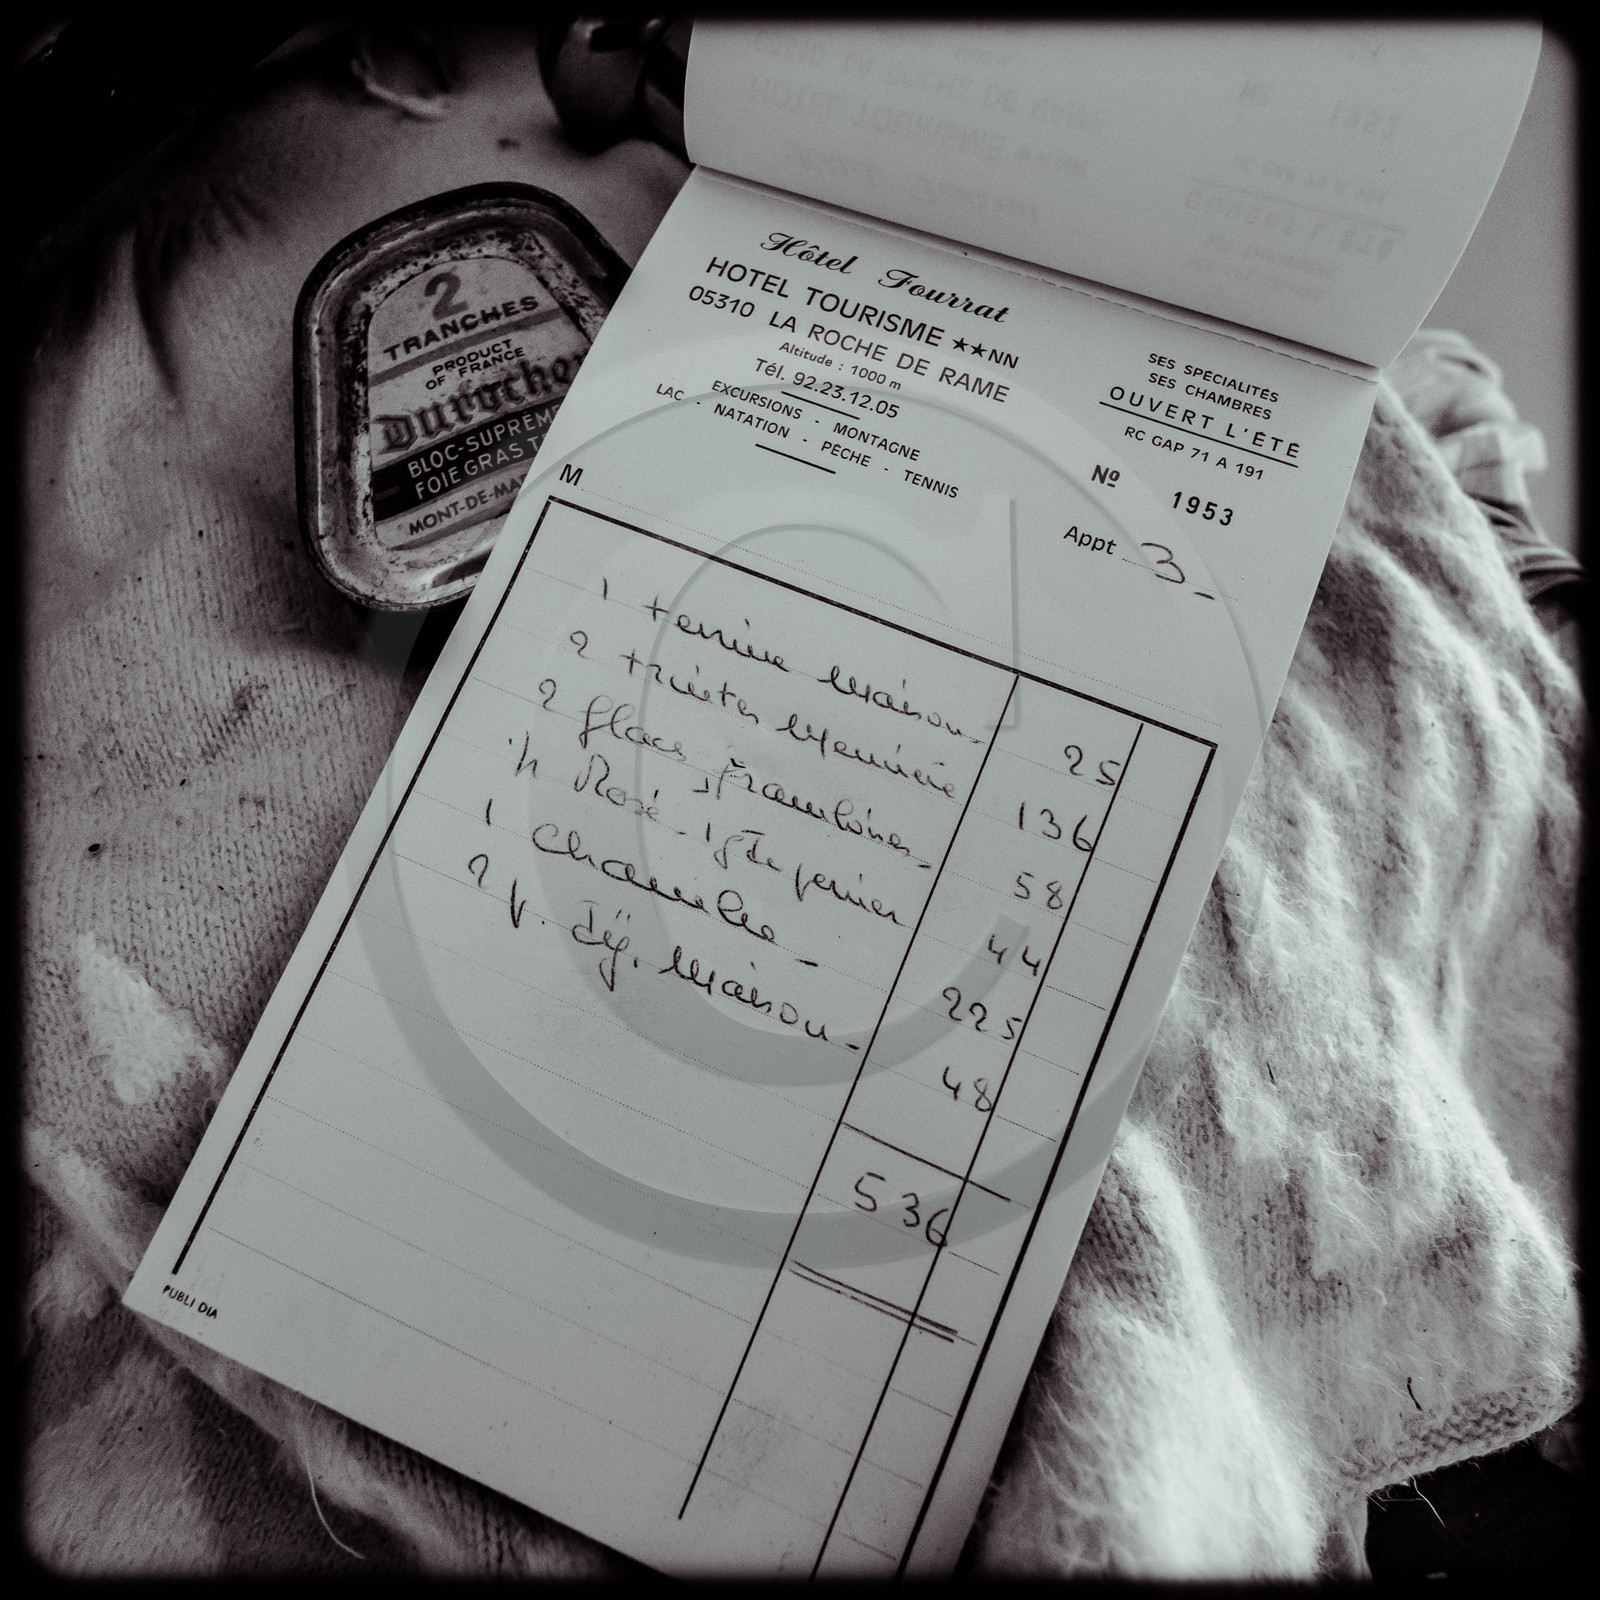 2
TRANCHES
PRODUCT
OF FRANCE
BLOC-SUPRÊME
FOIE GRAS
MONT-DE-MA
Hôtel Fourrat
HOTEL TOURISME ★★NN
05310 LA ROCHE DE RAME
Altitude : 1000 m
Tél. 92.23.12.05
EXCURSIONS - MONTAGNE
LAC - NATATION - PÊCHE - TENNIS
SES SPÉCIALITÉS
SES CHAMBRES
OUVERT L'ÉTÉ
RC GAP 71 A 191
Nº 1953
Appt 3 -
M
1 terrine Maison - 25
2 truites Meunière 136
2 glaces framboises - 58
Rosé - 44
1 Chambre - 225
2 p. dej. Maison - 48
536
PUBLI DIA